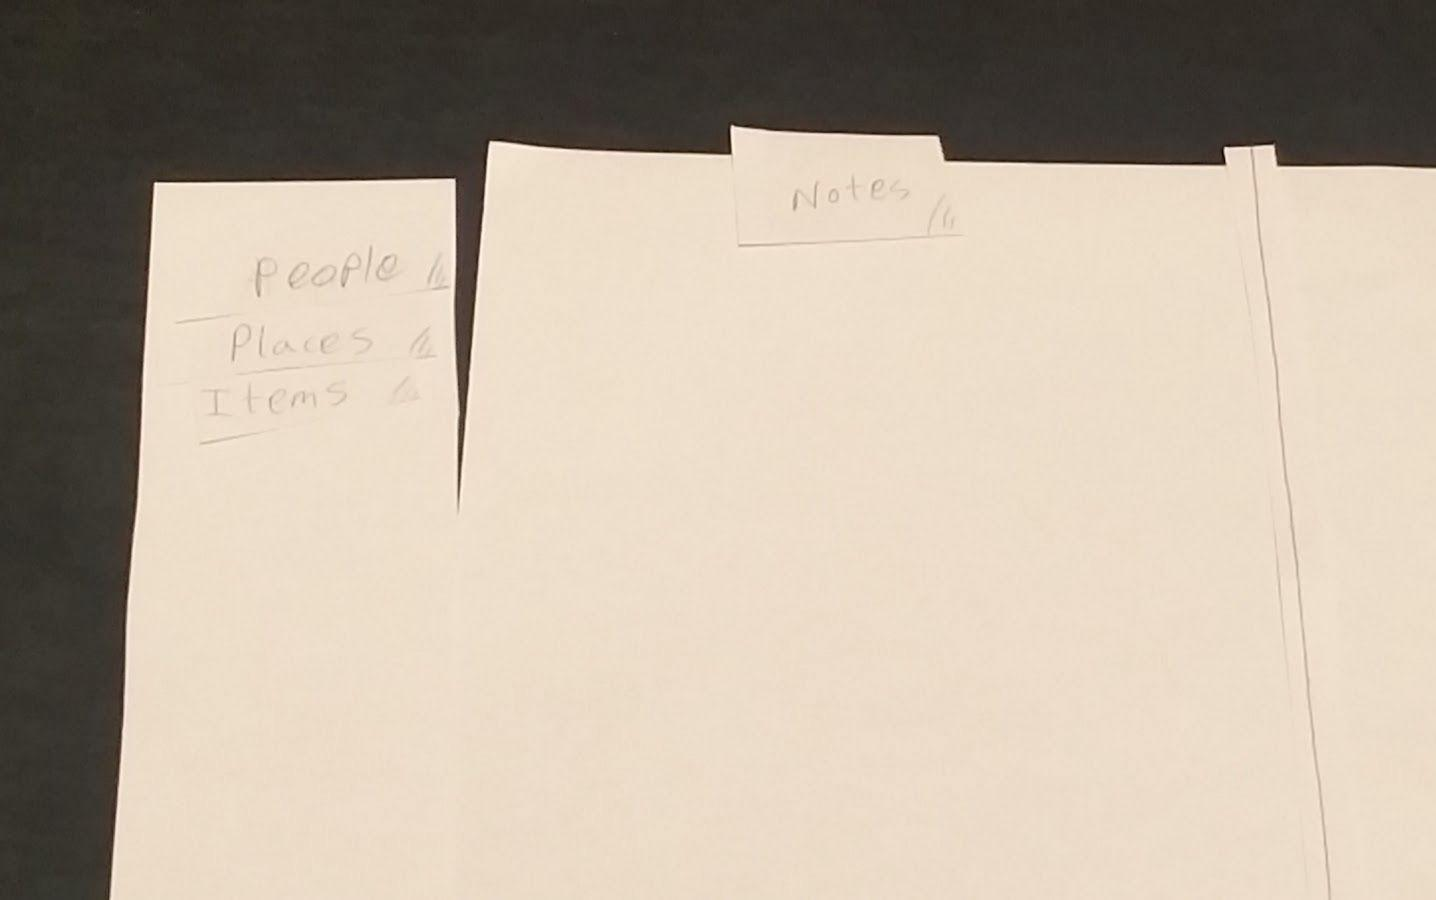 People
Places
Items
Notes